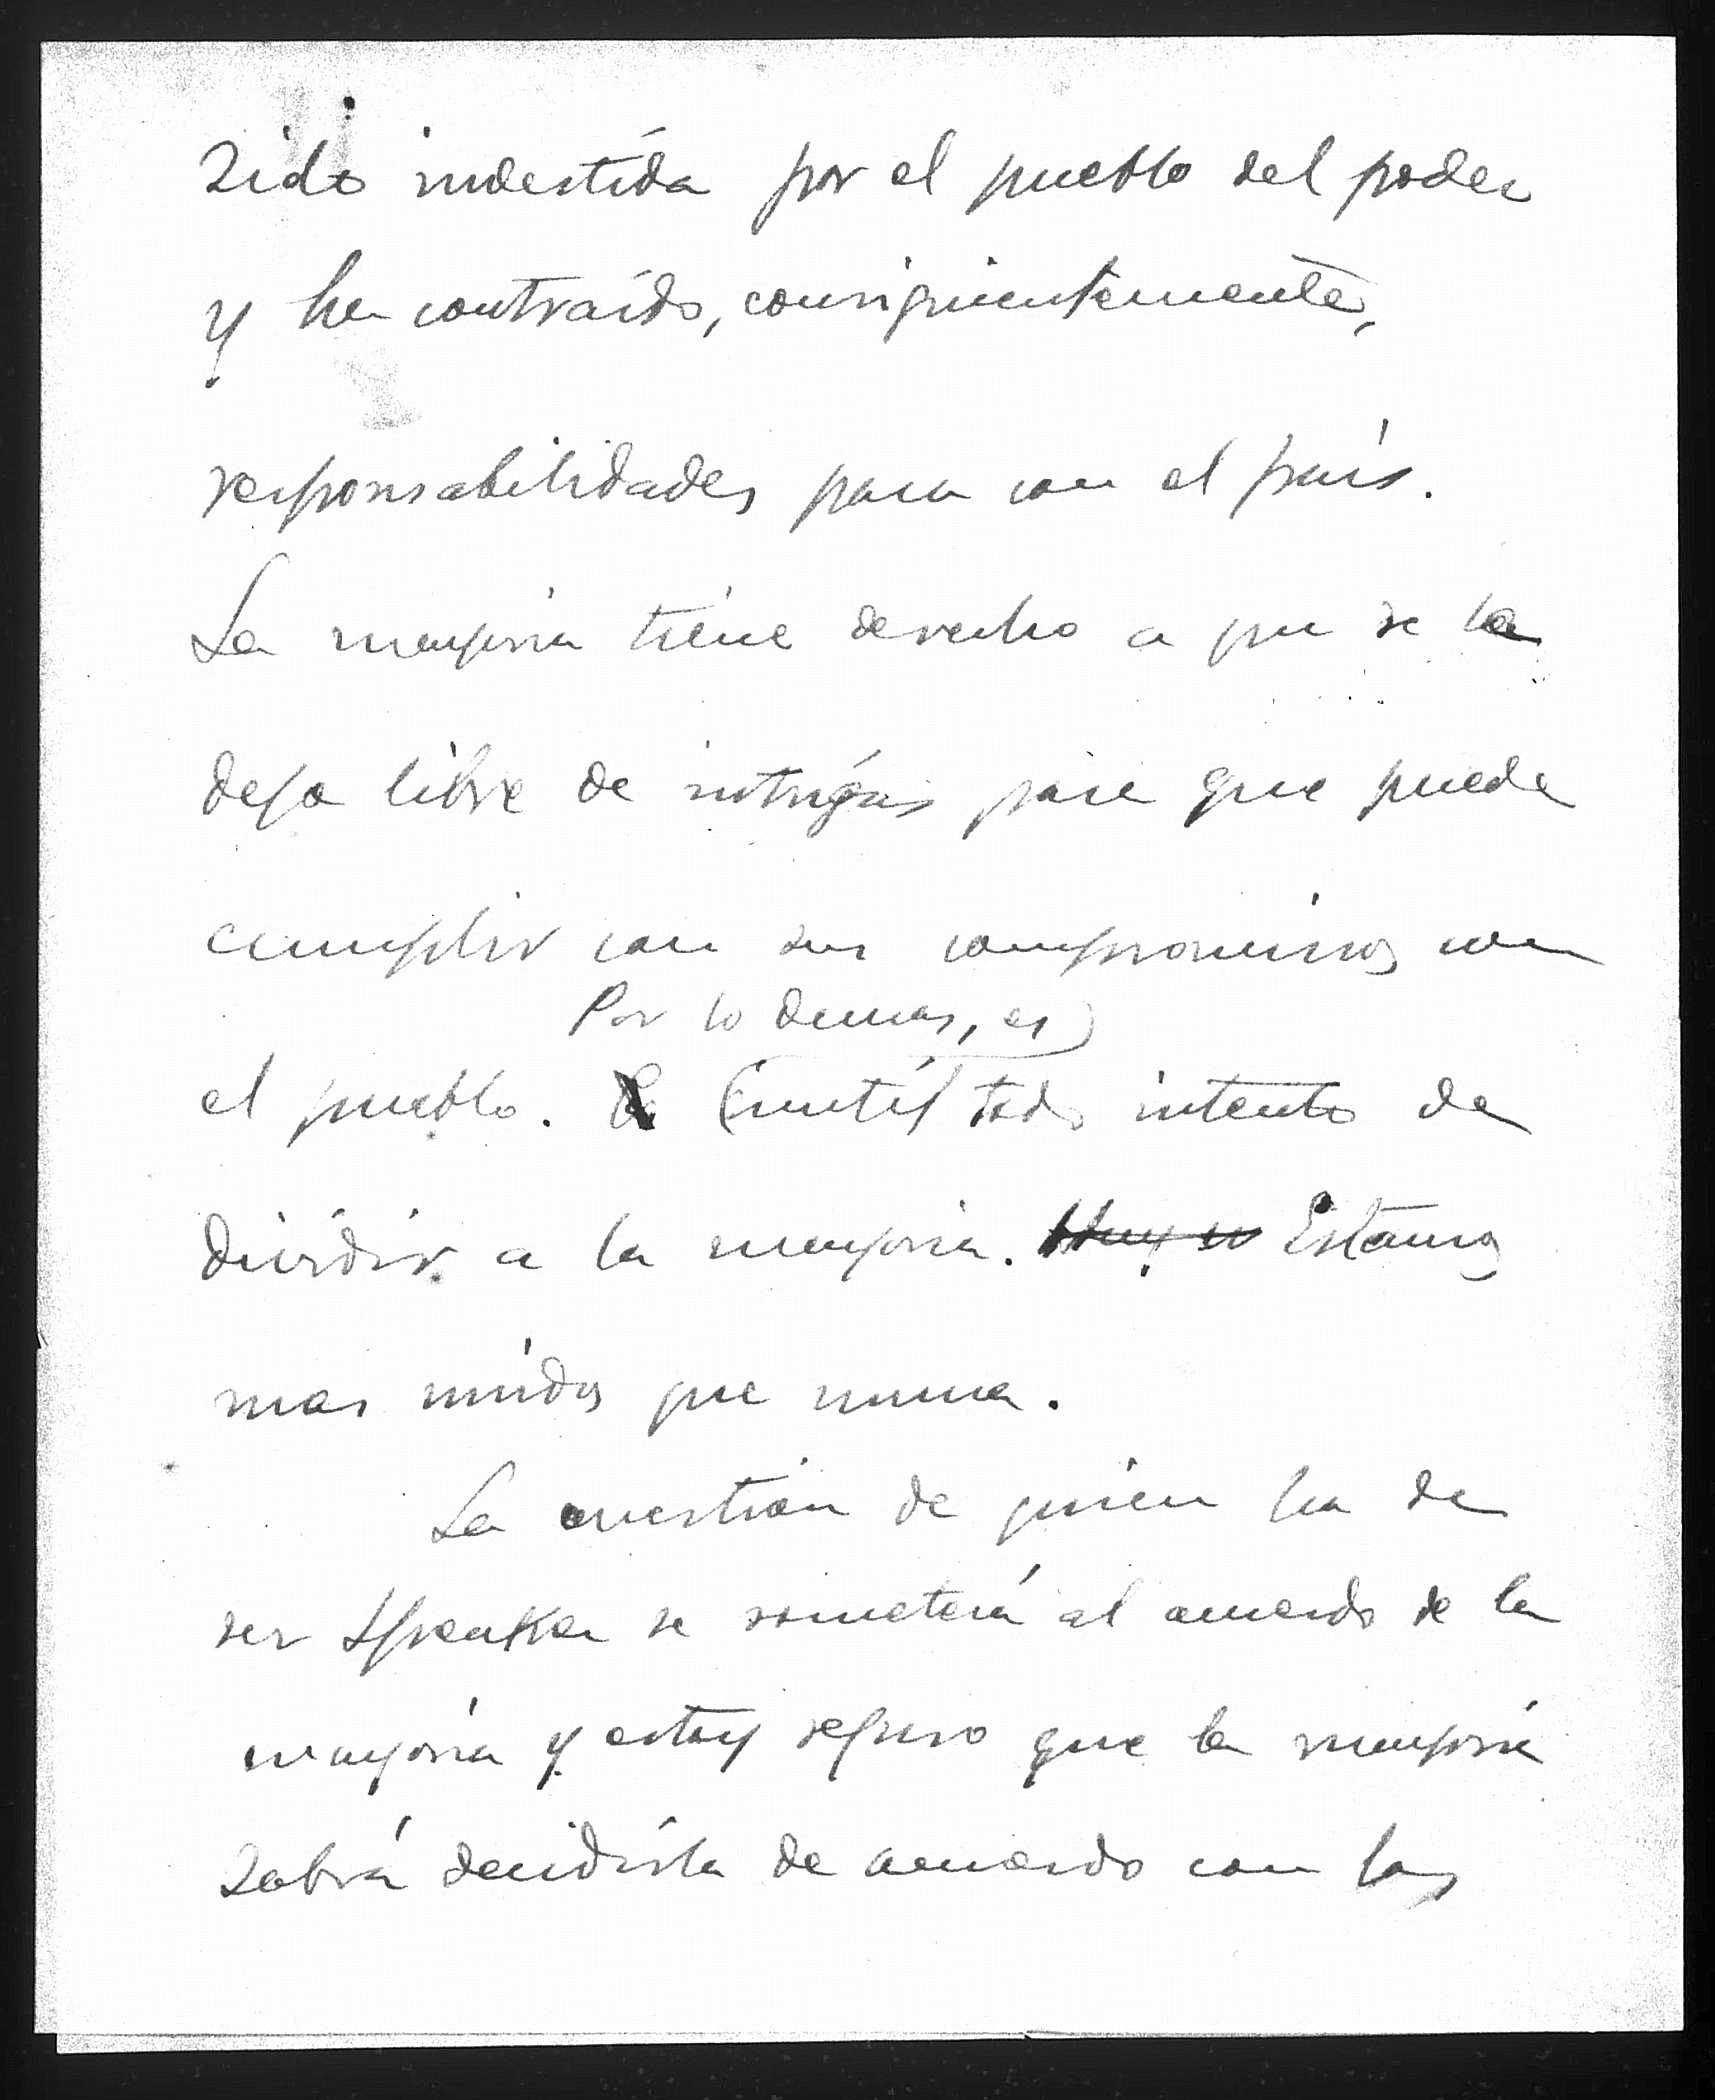 sido investida por el pueblo del poder
y ha contraído, consiguientemente,
responsabilidades para con el país.
La mayoria tiene derecho a que se la
deje libre de intrigas para que pueda
cumplir con sus compromisos con
Por lo demas, es
el pueblo. inutil todo intento de
dividir a la mayoria. Estamos
mas unidos que nunca.
La cuestión de quien ha de
ser Speaker se someterá al acuerdo de la
mayoría y estoy seguro que la mayoría
sabrá decidirla de acuerdo con los